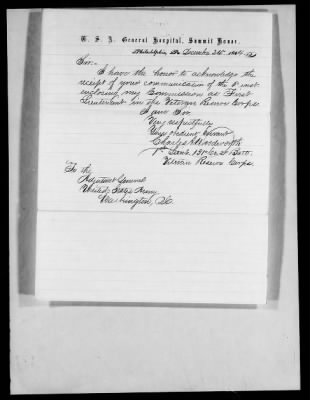 U. S. A. General Hospital, Summit House.
Philadelphia Pa December 24th 1864
Sir:—
I have the honor to acknowledge the
receipt of your communication of the 8" inst
enclosing my Commission as First
Lieutenant in the Veteran Reserve Corps.
I am Sir
Very respectfully
Your obedient Servant
Charles Wordsworth
1st Lieut. 131st Co. 2d Batt.
Veteran Reserve Corps.
To the
Adjutant General
United States Army
Washington, D.C.